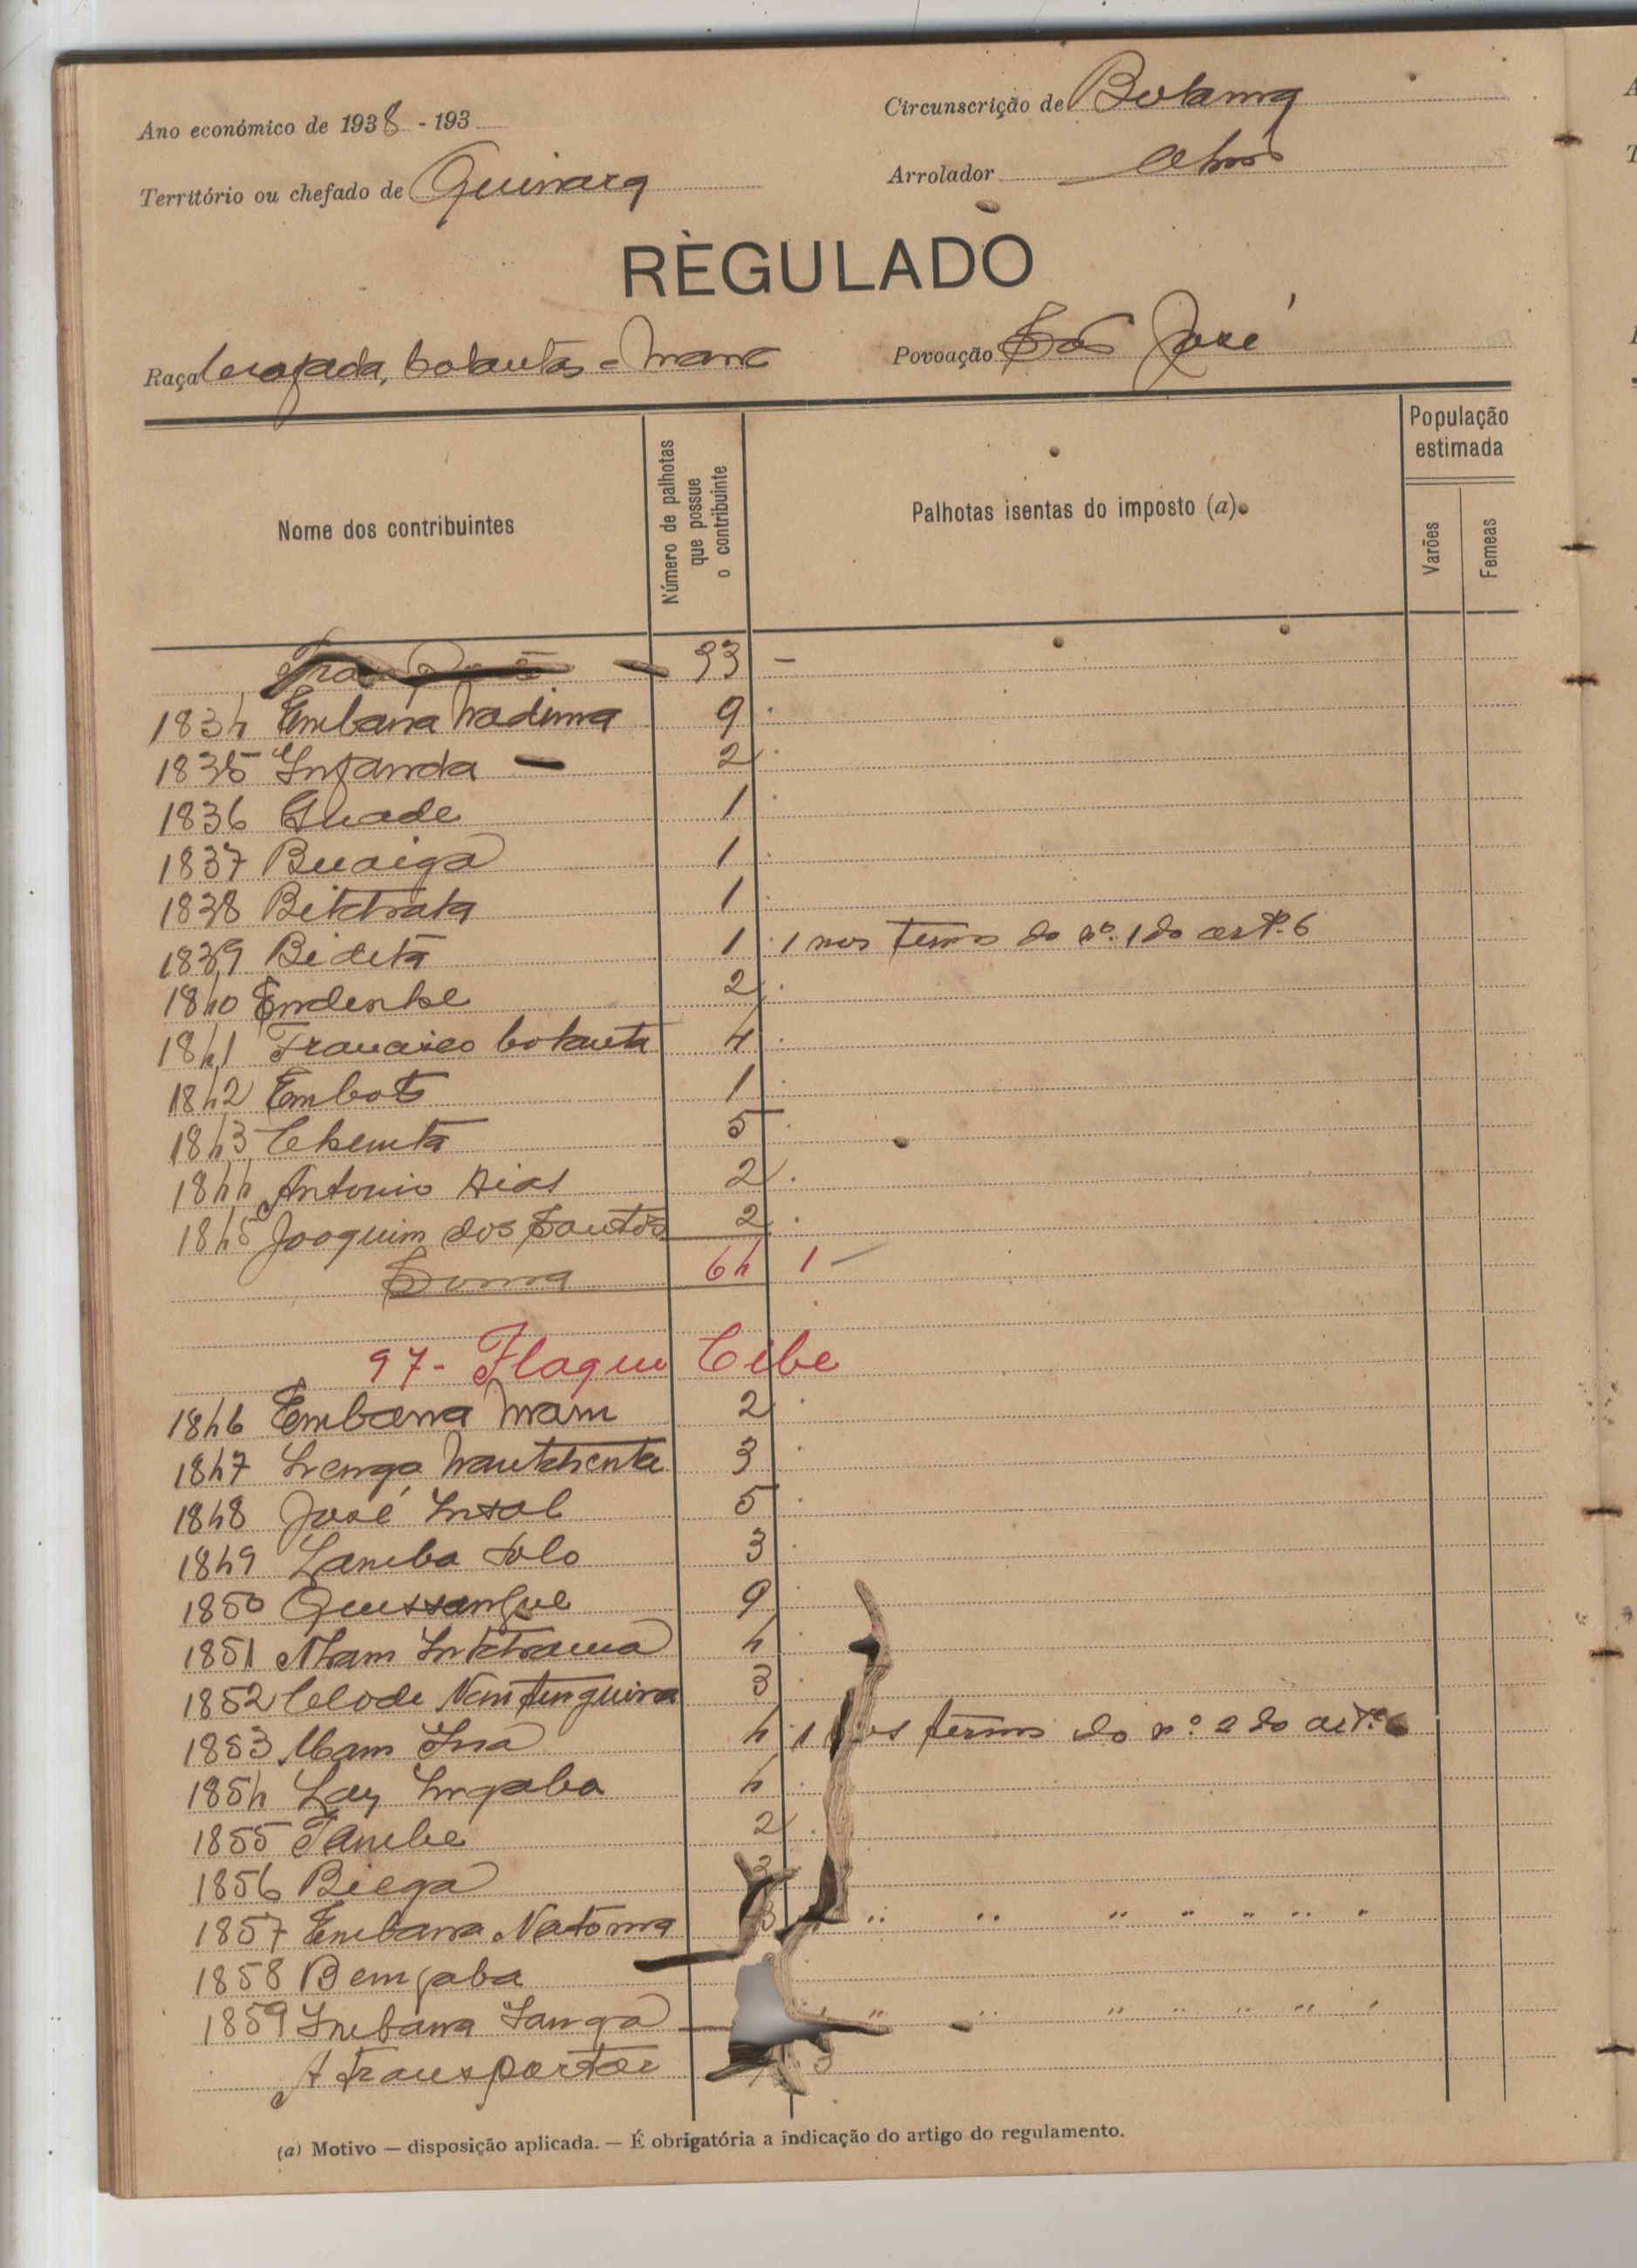 Ano económico de 1938 - 193
Circunscrição de Bolama
Território ou chefado de Quinara
Arrolador
RÈGULADO
Raça balantas e
Povoação São José
Nome dos contribuintes
Número de palhotas que possue o contribuinte
Palhotas isentas do imposto (a)
População estimada
Varões
Femeas
33 -
1834 Embana Nadima 9
1835 Infanda - 2
1836 Guade 1
1837 Buaiga 1
1838 Bitchata 1
1839 Bideta 1 1 nos termos do nº. 1 do artº. 6
1840 2
1841 Francisco balanta 4
1842 Embots 1
1843 5
1844 Antonio Dias 2
1845 Joaquim dos Santos 2
Soma 64 1 -
97 - Flaque Cibe
1846 Embana 2
1847 3
1848 José Intal 5
1849 Lamba Tolo 3
1850 Quissangue 9
1851 4
1852 Clode 3
1853 4 1 nos termos do nº. 2 do artº. 6
1854 Lay Ingaba 4
1855 Tambe 2
1856 Biega 3
1857 Embana Natoma 3 " " " " " " "
1858 Bemgaba
1859 Inbana Sanga " " " " " " "
A transportar 3
(a) Motivo — disposição aplicada. — É obrigatória a indicação do artigo do regulamento.